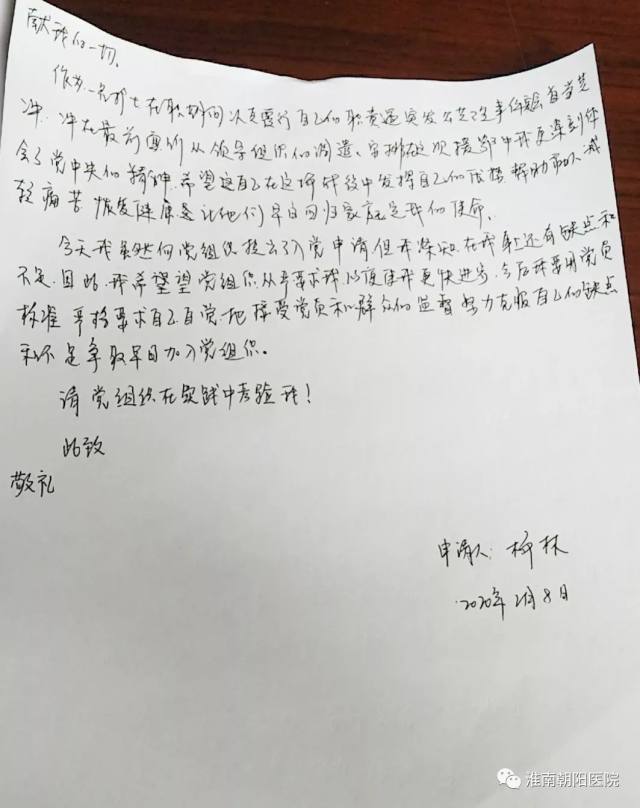 献我的一切。
作为一名护士在职期间认真履行自己的职责遇突发公共卫生事件我会首当其
冲,冲在最前面听从领导组织的调遣、安排在这次援鄂中我更深刻体
会了党中央的精神,希望这自己在这场战役中发挥自己的依 帮助病人减
轻痛苦 恢复健康是让他们早日回归家庭是我的使命。
今天我虽然向党组织提出了入党申请但我深知,在我身上还有缺点和
不足,因此,我希望望党组织从严要求我,以便使我更快进步,今后我要用党员
标准 严格要求自己自觉地接受党员和群众的监督努力克服自己的缺点
和不足争取早日加入党组织。
请党组织在实践中考验我!
此致
敬礼
申请人:柳林
2020年2月8日
淮南朝阳医院